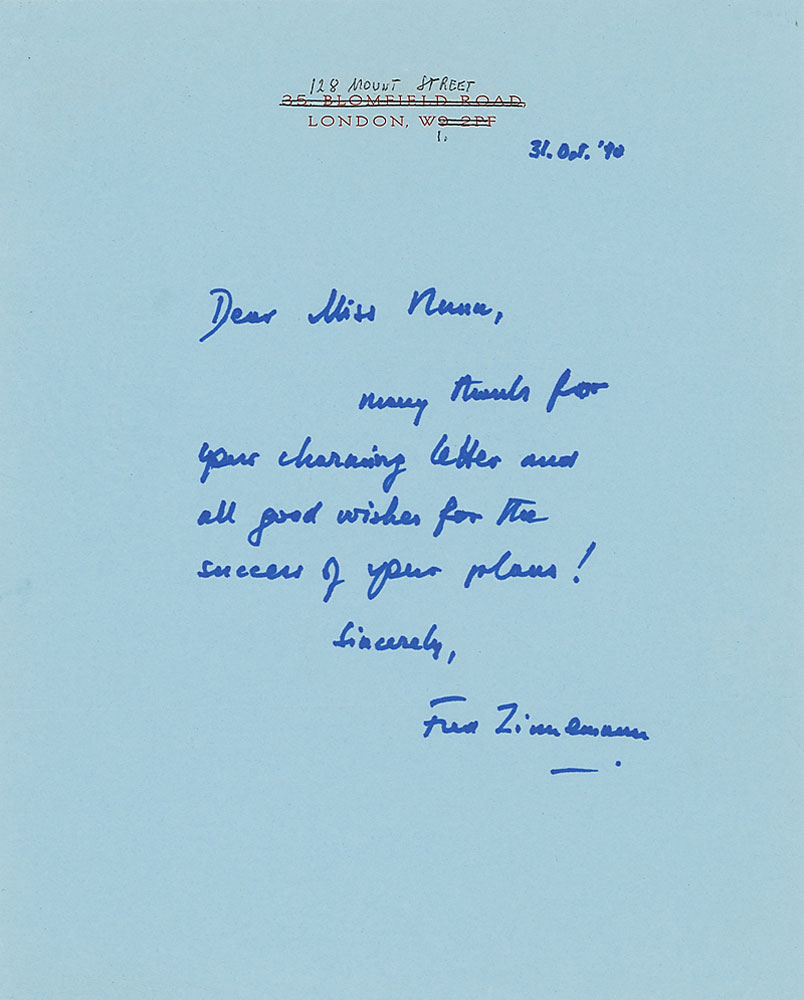 128 MOUNT STREET
35, BLOMFIELD ROAD,
LONDON, W9 2PF
1.
31. Oct. '90
Dear Miss Nunn,
many thanks for
your charming letter and
all good wishes for the
success of your plans!
Sincerely,
Fred Zinnemann